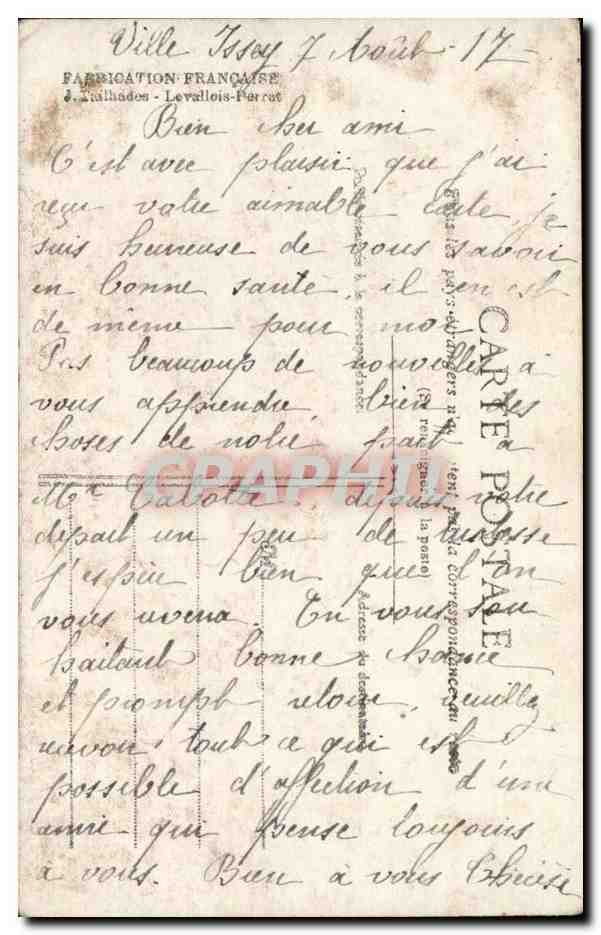 Ville Issey 7 Août - 17 -
FABRICATION FRANÇAISE
J. Tailhades - Levallois-Perret
Bien cher ami
C'est avec plaisir que j'ai
reçu votre aimable carte, je
suis heureuse de vous savoir
en bonne santé, il en est
de même pour moi
Pas beaucoup de nouvelles à
vous apprendre, bien des
choses de notre part à
Mr Cabotte, depuis votre
depart un peu de tristesse
j'espère bien que l'on
vous revera. En vous sou
haitant bonne chance
et prompt retour, veuillez
recevoir tout ce qui est
possible d'affection d'une
amie qui pense toujours
à vous. Bien à vous Thérèse
CARTE POSTALE
Tous les pays étrangers n'acceptent pas la correspondance au verso
(Se renseigner à la poste)
Partie réservée à la correspondance
Adresse du destinataire
CRAPHIL